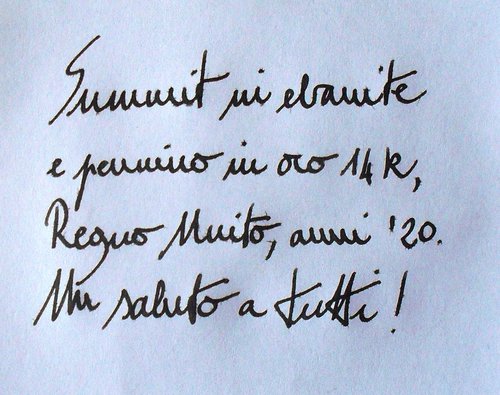 Summit in ebanite
e pennino in oro 14 k,
Regno Unito, anni '20.
Un saluto a tutti!